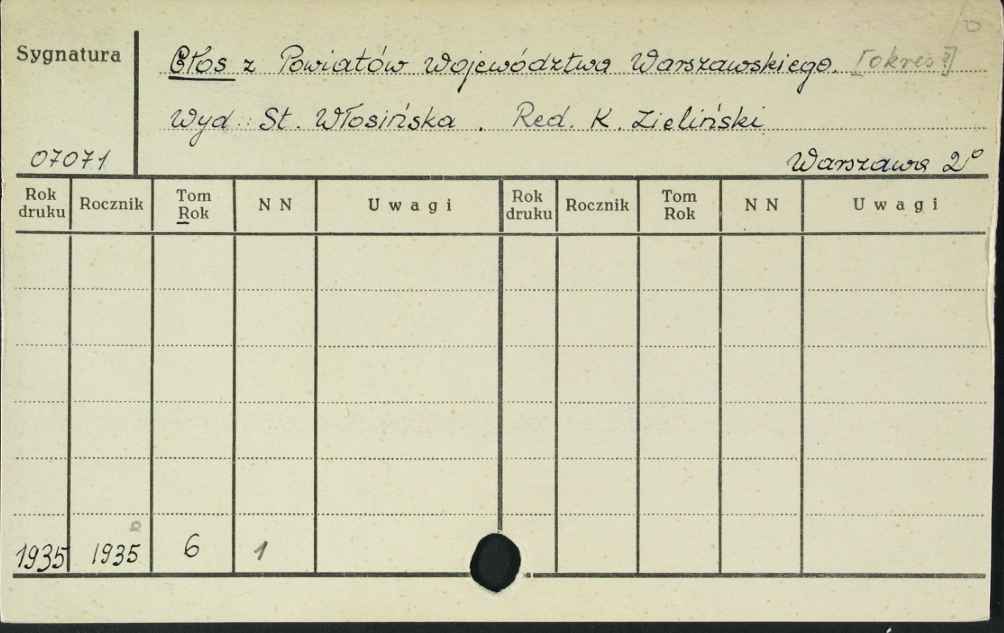 Sygnatura
Głos z Powiatów Województwa Warszawskiego. [okres?]
Wyd. : St. Włosińska . Red. K. Zieliński
07071
Warszawa 2°
Rok druku Rocznik Tom Rok NN Uwagi Rok druku Rocznik Tom Rok NN Uwagi
1935 1935 6 1